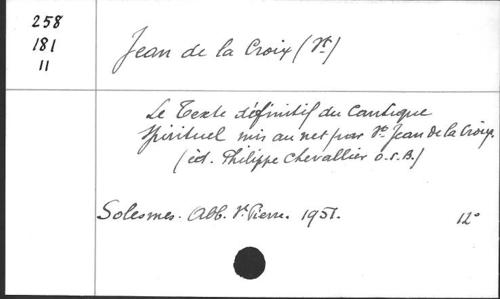 258
181
11
Jean de la Croix (St)
Le Texte définitif du Cantique
spirituel mis au net par St Jean de la Croix.
(éd. Philippe Chevallier O.S.B.)
Solesmes. Abb. St Pierre. 1951. 12°